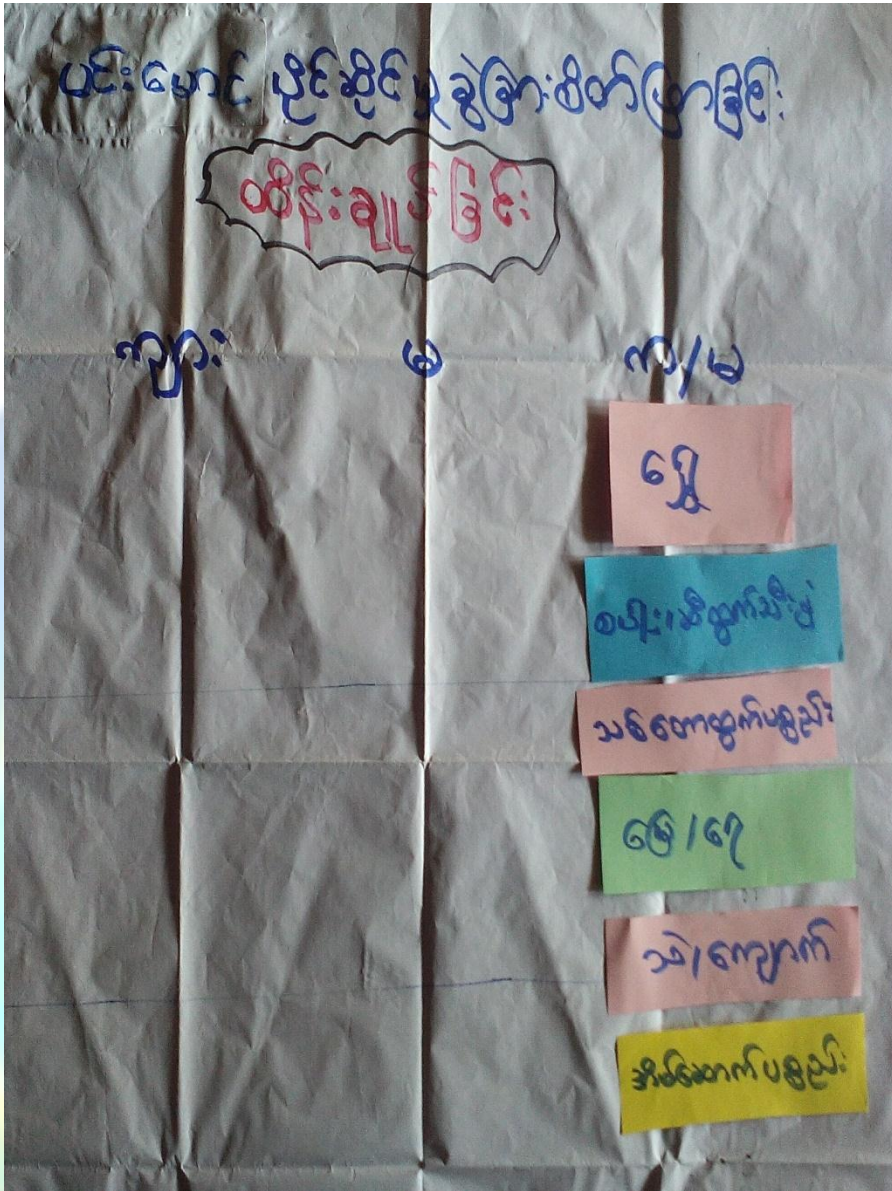 ပင်းမောင် ပိုင်ဆိုင်မှု ခွဲခြားစိတ်ဖြာခြင်း
ထိန်းချုပ်ခြင်း
ကျား မ ကျ/မ
ရွှေ
စပါး၊ဆီထွက်သီးနှံ
သစ်တောထွက်ပစ္စည်း
မြေ/ရေ
သဲ/ကျောက်
အိမ်ဆောက်ပစ္စည်း